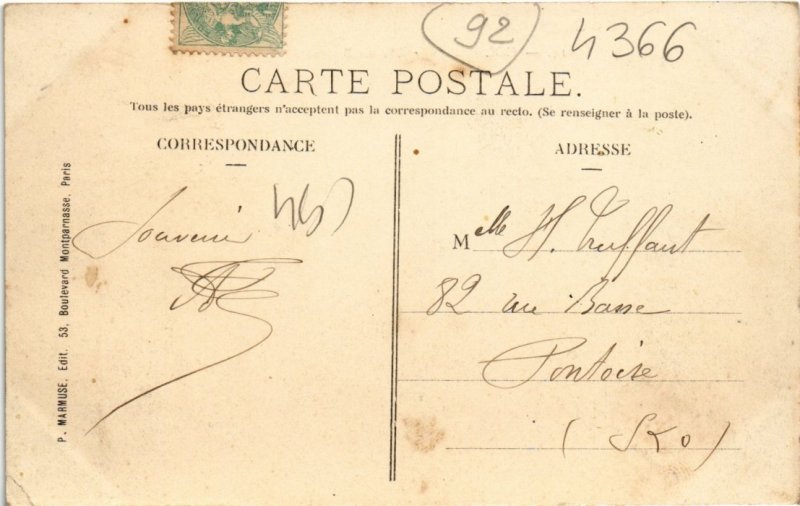 92
4366
CARTE POSTALE.
Tous les pays étrangers n'acceptent pas la correspondance au recto. (Se renseigner à la poste).
CORRESPONDANCE
ADRESSE
Souvenir
Mlle H. Truffaut
82 rue Basse
Pontoise
(S&O)
P. MARMUSE. Edit. 53, Boulevard Montparnasse. Paris